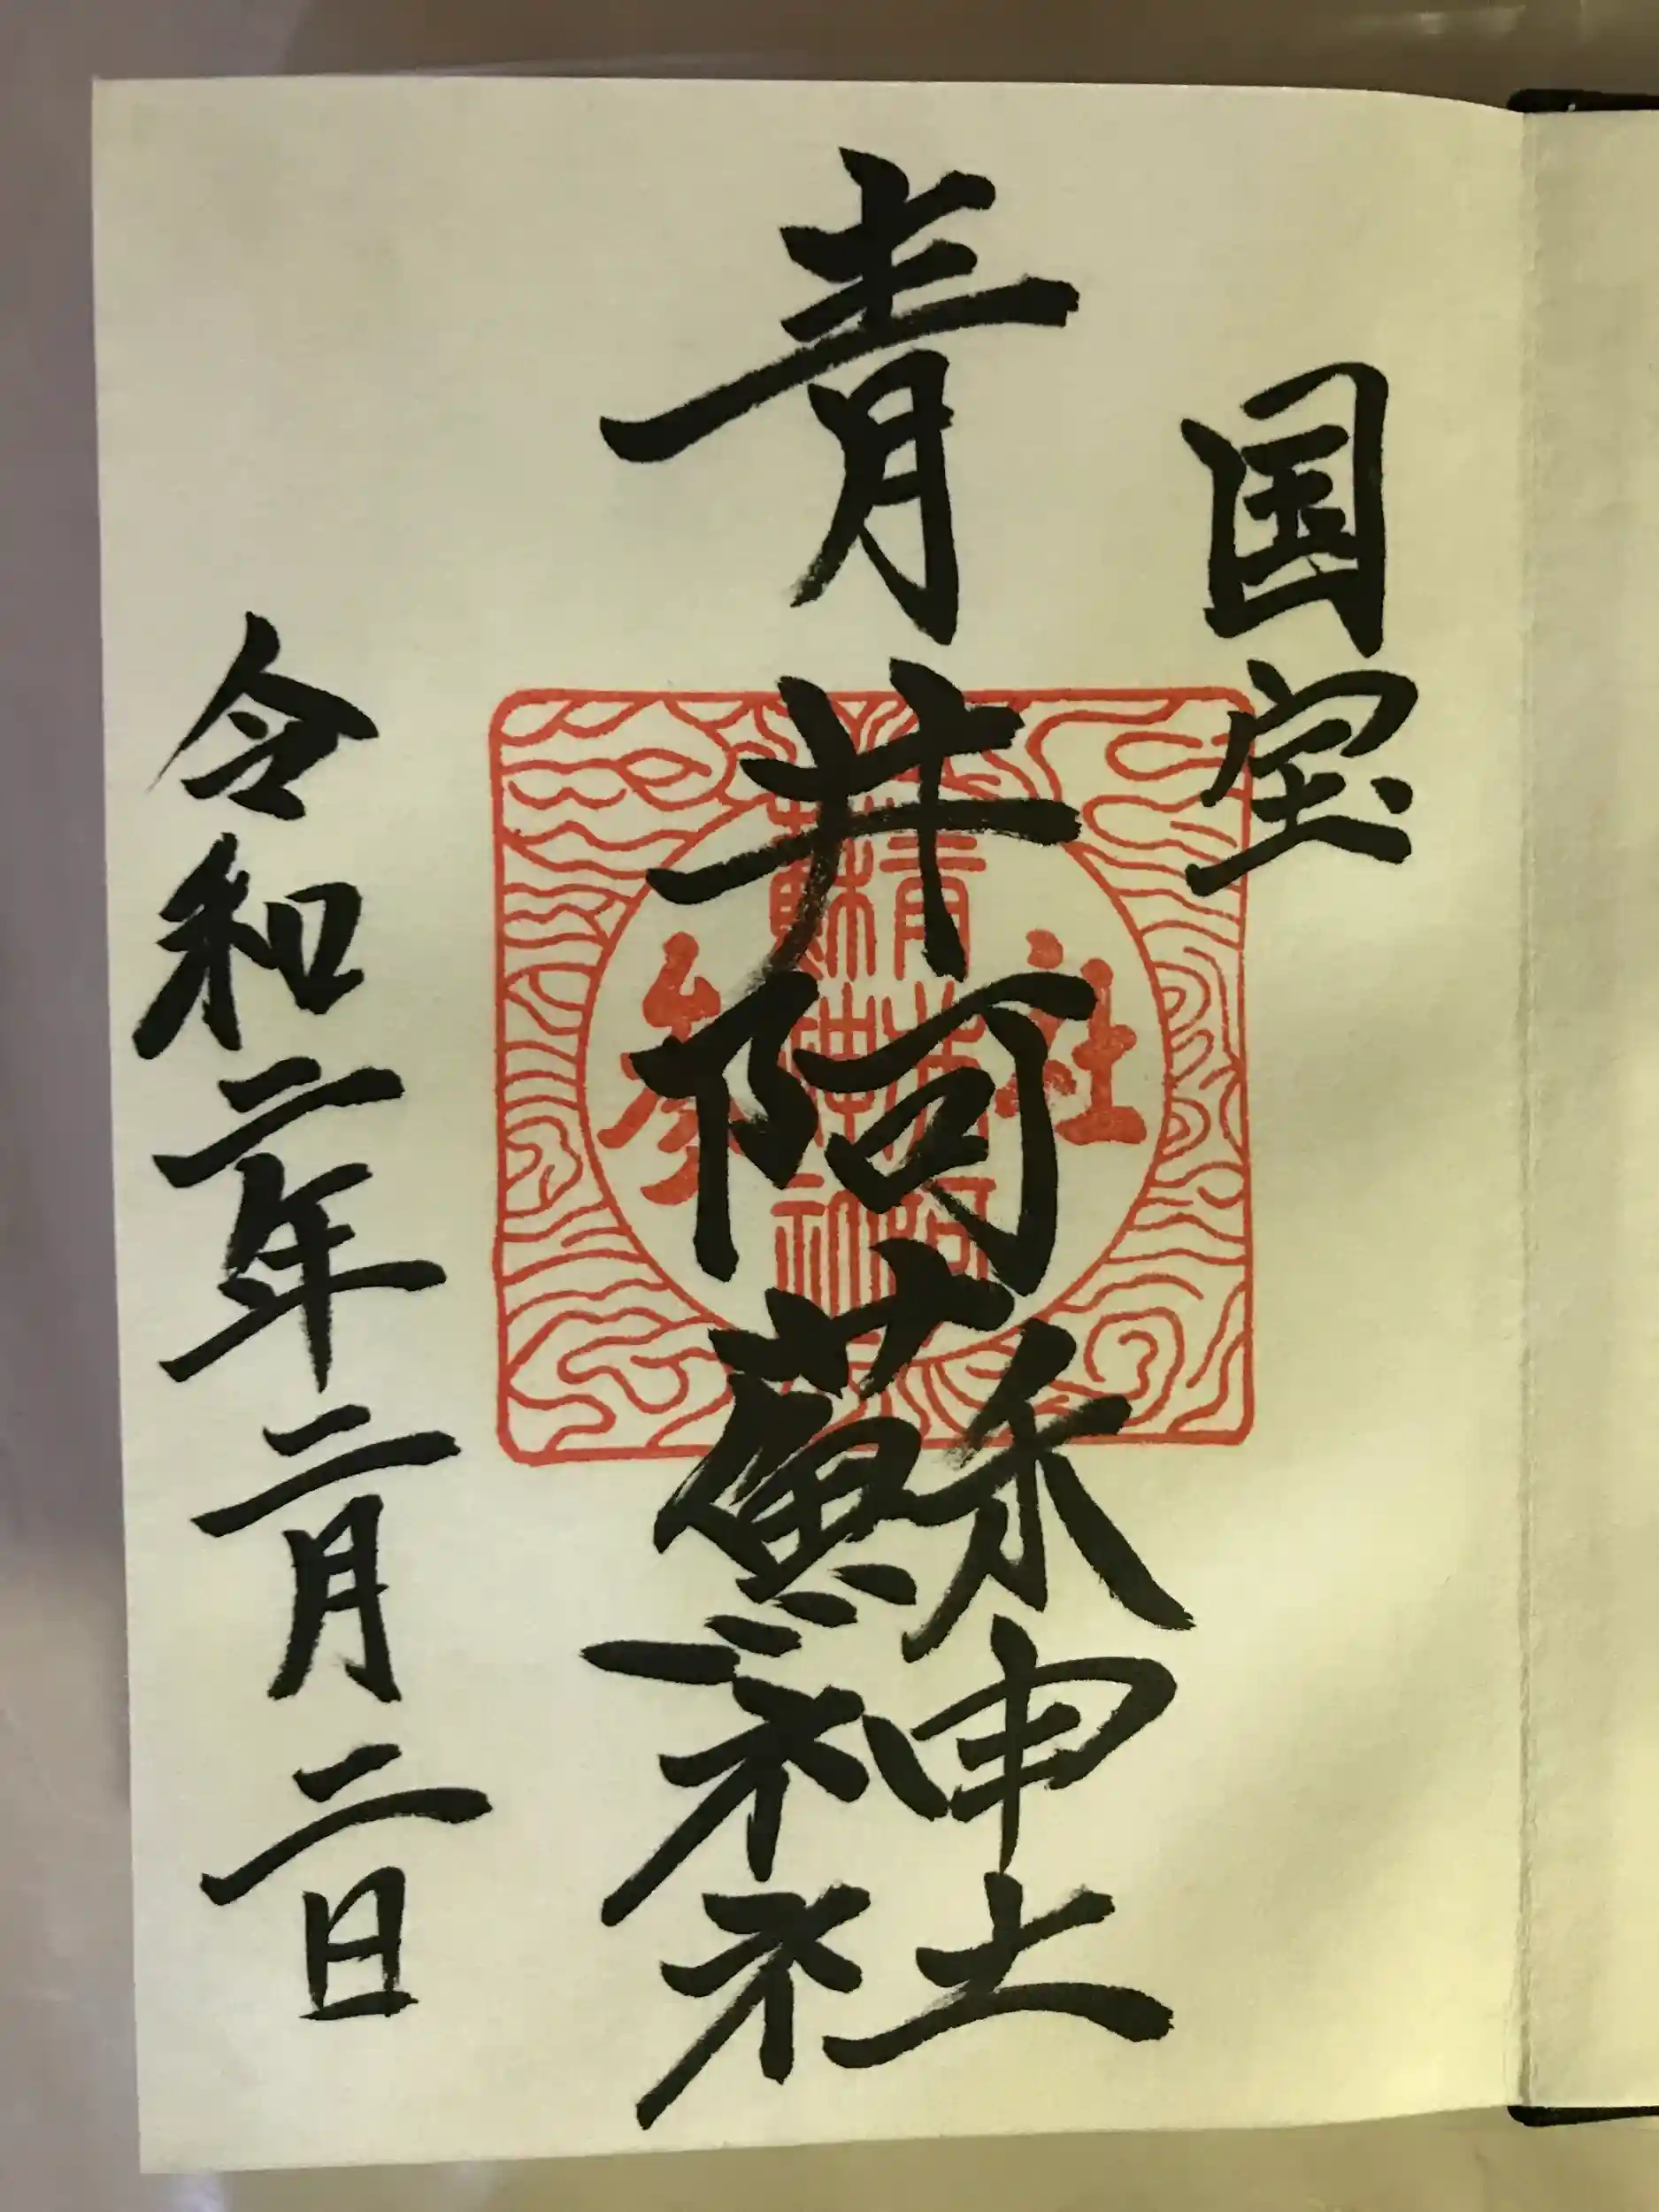 国宝
青井阿蘇神社
社参
青井阿
蘇神社
令和二年二月二日